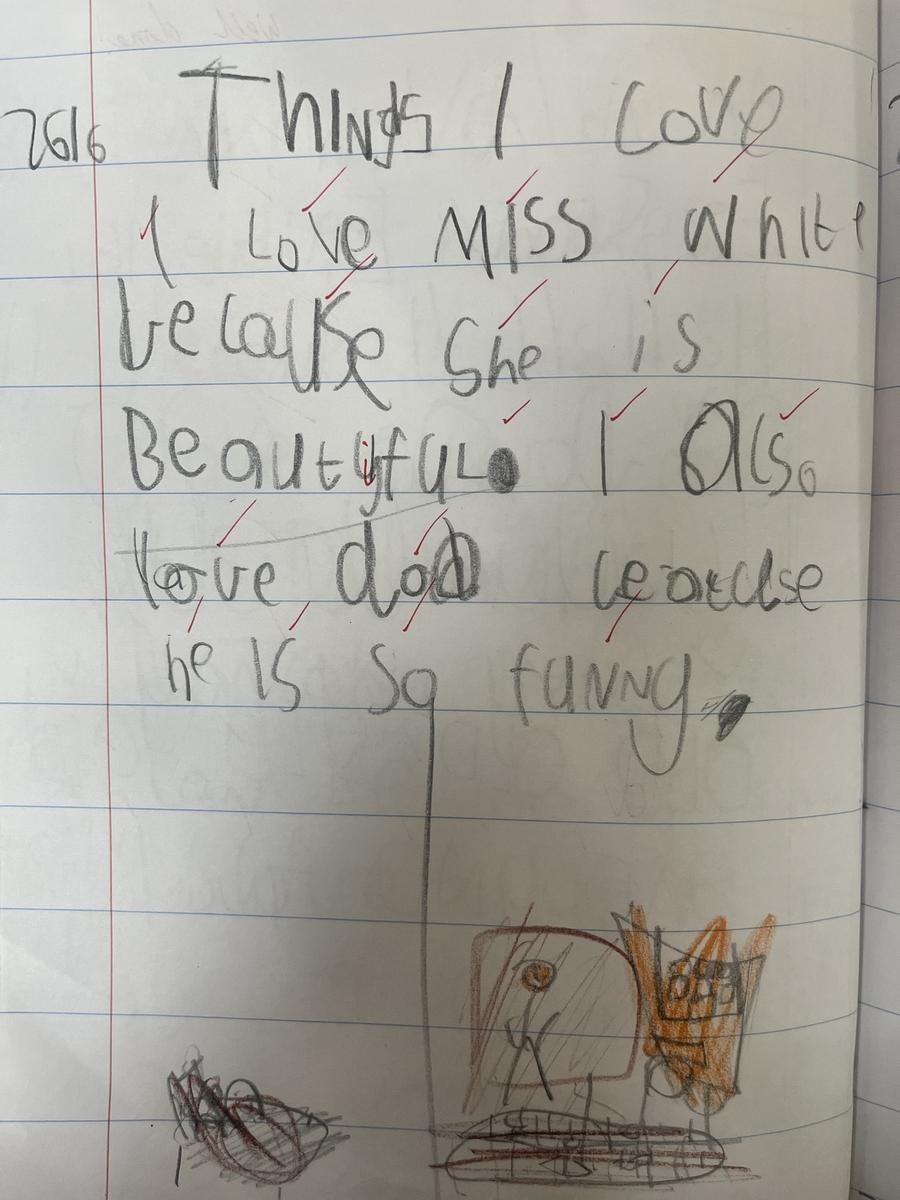 2616 Things I Love
I Love MISS White
becauKse She is
Beautyful. I Also
love dad becaucse
he IS So funny.